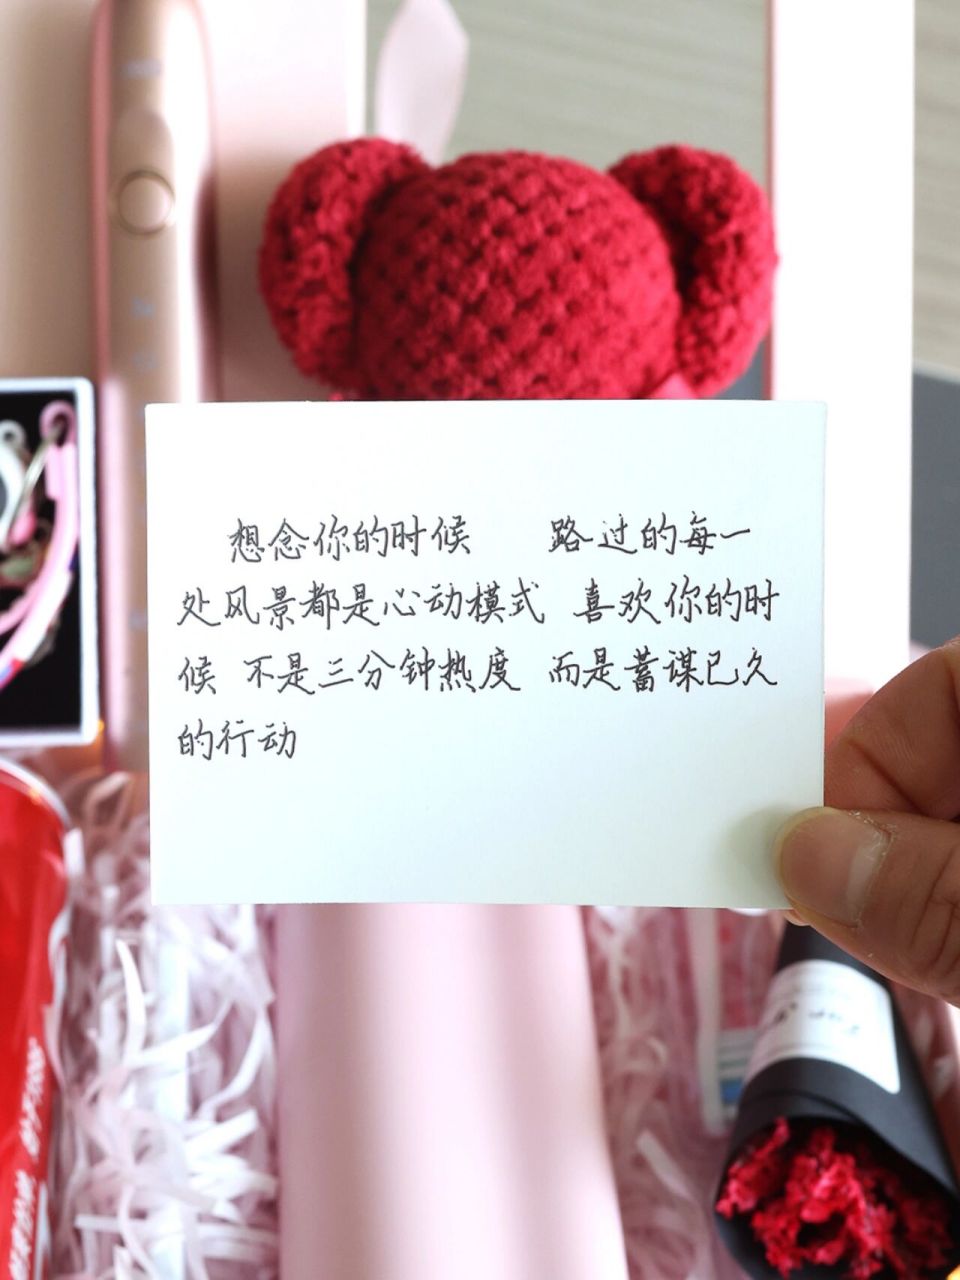 想念你的时候 路过的每一
处风景都是心动模式 喜欢你的时
候 不是三分钟热度 而是蓄谋已久
的行动